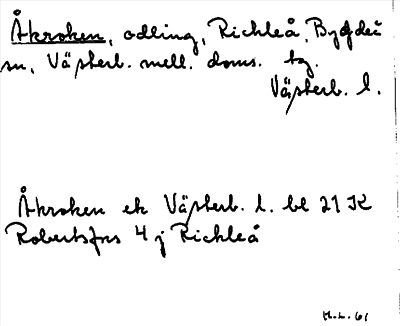 Åkroken, odling, Rickleå, Bygdeå
sn, Västerb. mell. doms. tg.
Västerb. l.
Åkroken ek Västerb. l. bl 21 K
Robertsfors 4 j Rickleå